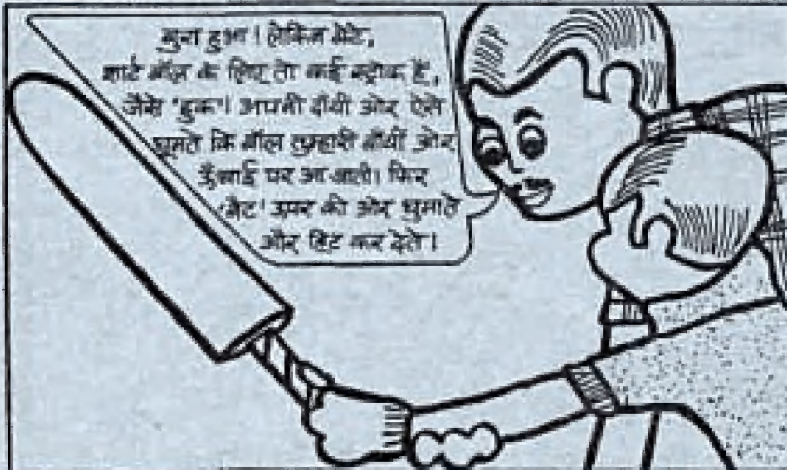 बुरा हुआ। लेकिन बेटे,
शार्ट बॉल के लिए तो कई स्ट्रोक हैं,
जैसे 'हुक'। अपनी दाँयी ओर ऐसे
घूमते कि बॉल तुम्हारी बाँयीं ओर
ऊँचाई पर आ जाती। फिर
'बैट' ऊपर की ओर घुमाते
और हिट कर देते।